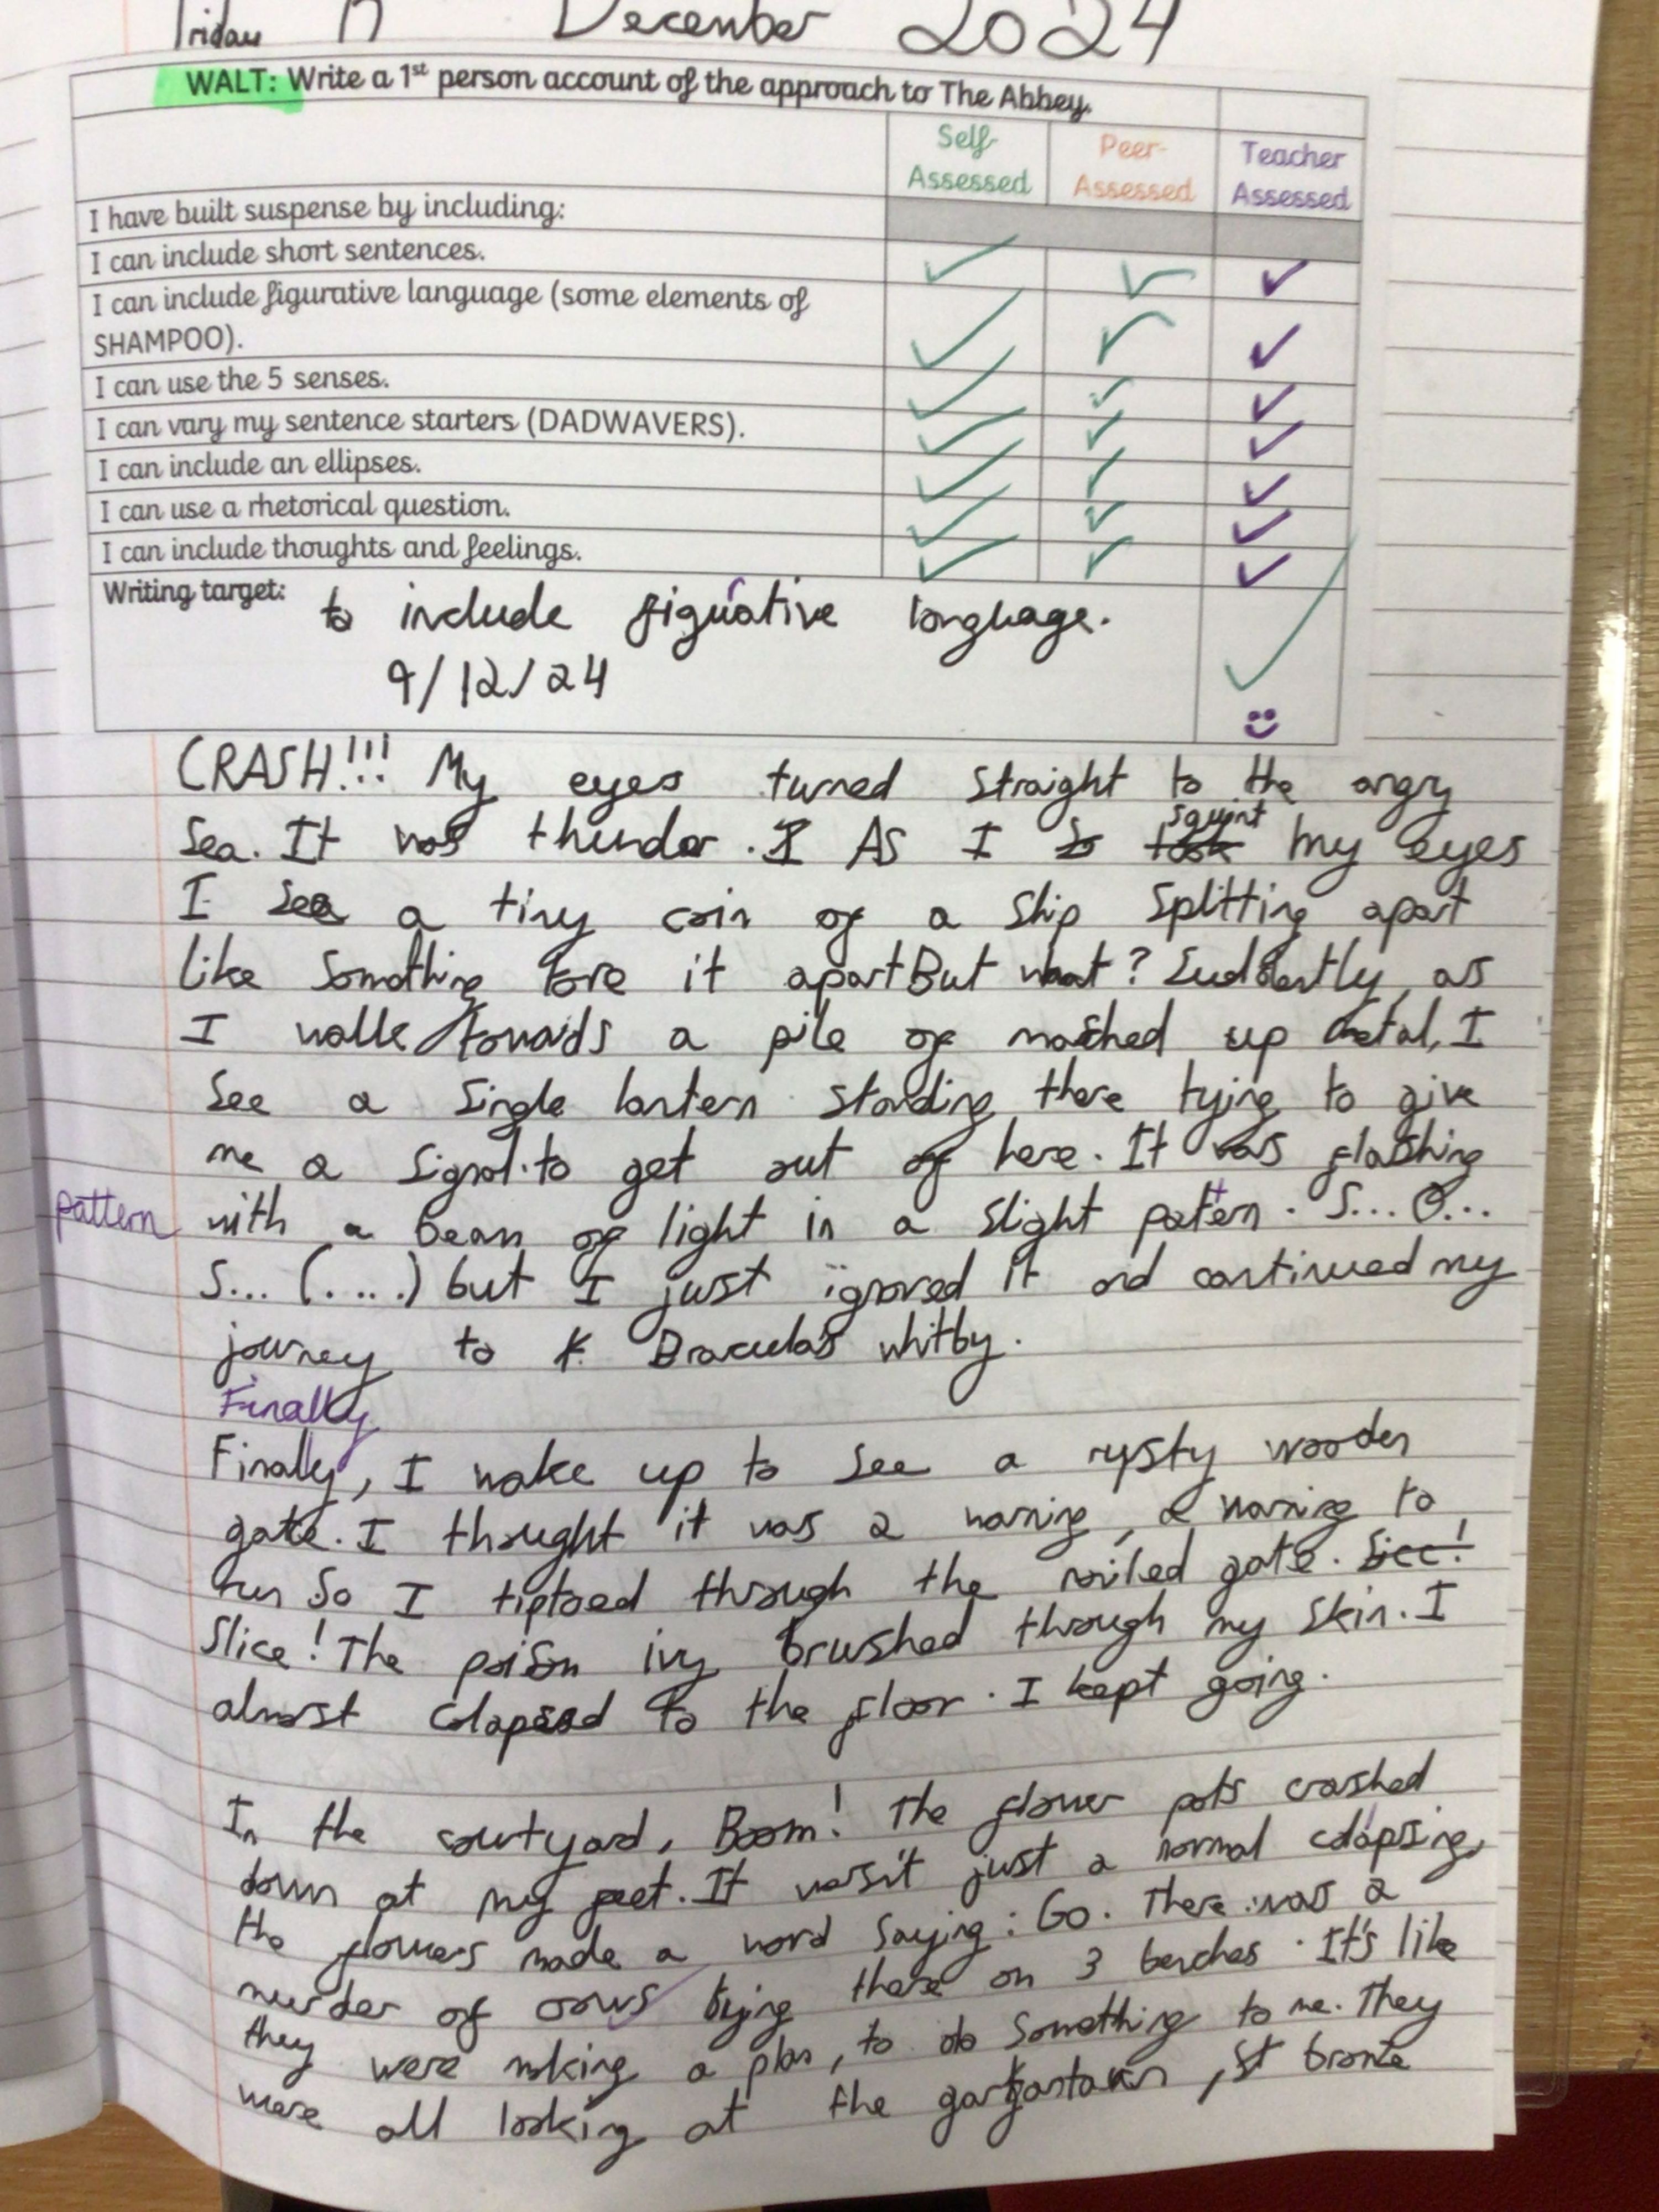 Friday December 2024
WALT: Write a 1st person account of the approach to The Abbey.
Self-Assessed
Peer-Assessed
Teacher Assessed
I have built suspense by including:
I can include short sentences.
I can include figurative language (some elements of
SHAMPOO).
I can use the 5 senses.
I can vary my sentence starters (DADWAVERS).
I can include an ellipses.
I can use a rhetorical question.
I can include thoughts and feelings.
Writing target: to include figuative language.
r
9/12/24
CRASH!!! My eyes turned straight to the angry
sea. It was thunder. As I squint my eyes
I see a tiny coin of a ship splitting apart
like something tore it apart But what? Suddently, as
I walk towards a pile of mashed up metal, I
see a single lantern standing there trying to give
me a signal to get out of here. It was flashing
pattern with a beam of light in a slight patern. S... O...
S... (....) but I just ignored it and continued my
journey to Dracula's whitby.
Finally
Finally, I wake up to see a rysty wooden
gate. I thought it was a warning, a warning to
run So I tiptoed through the gate.
Slice! The poison ivy brushed through my skin. I
almost colapsed to the floor. I kept going.
In the courtyard, Boom! The flower pots crashed
down at my feet. It wasn't just a normal colapsing,
the flowers made a word saying: Go. There was a
murder of crows there on 3 benches. It's like
they were making a plan, to do something to me. They
were all looking at the , st